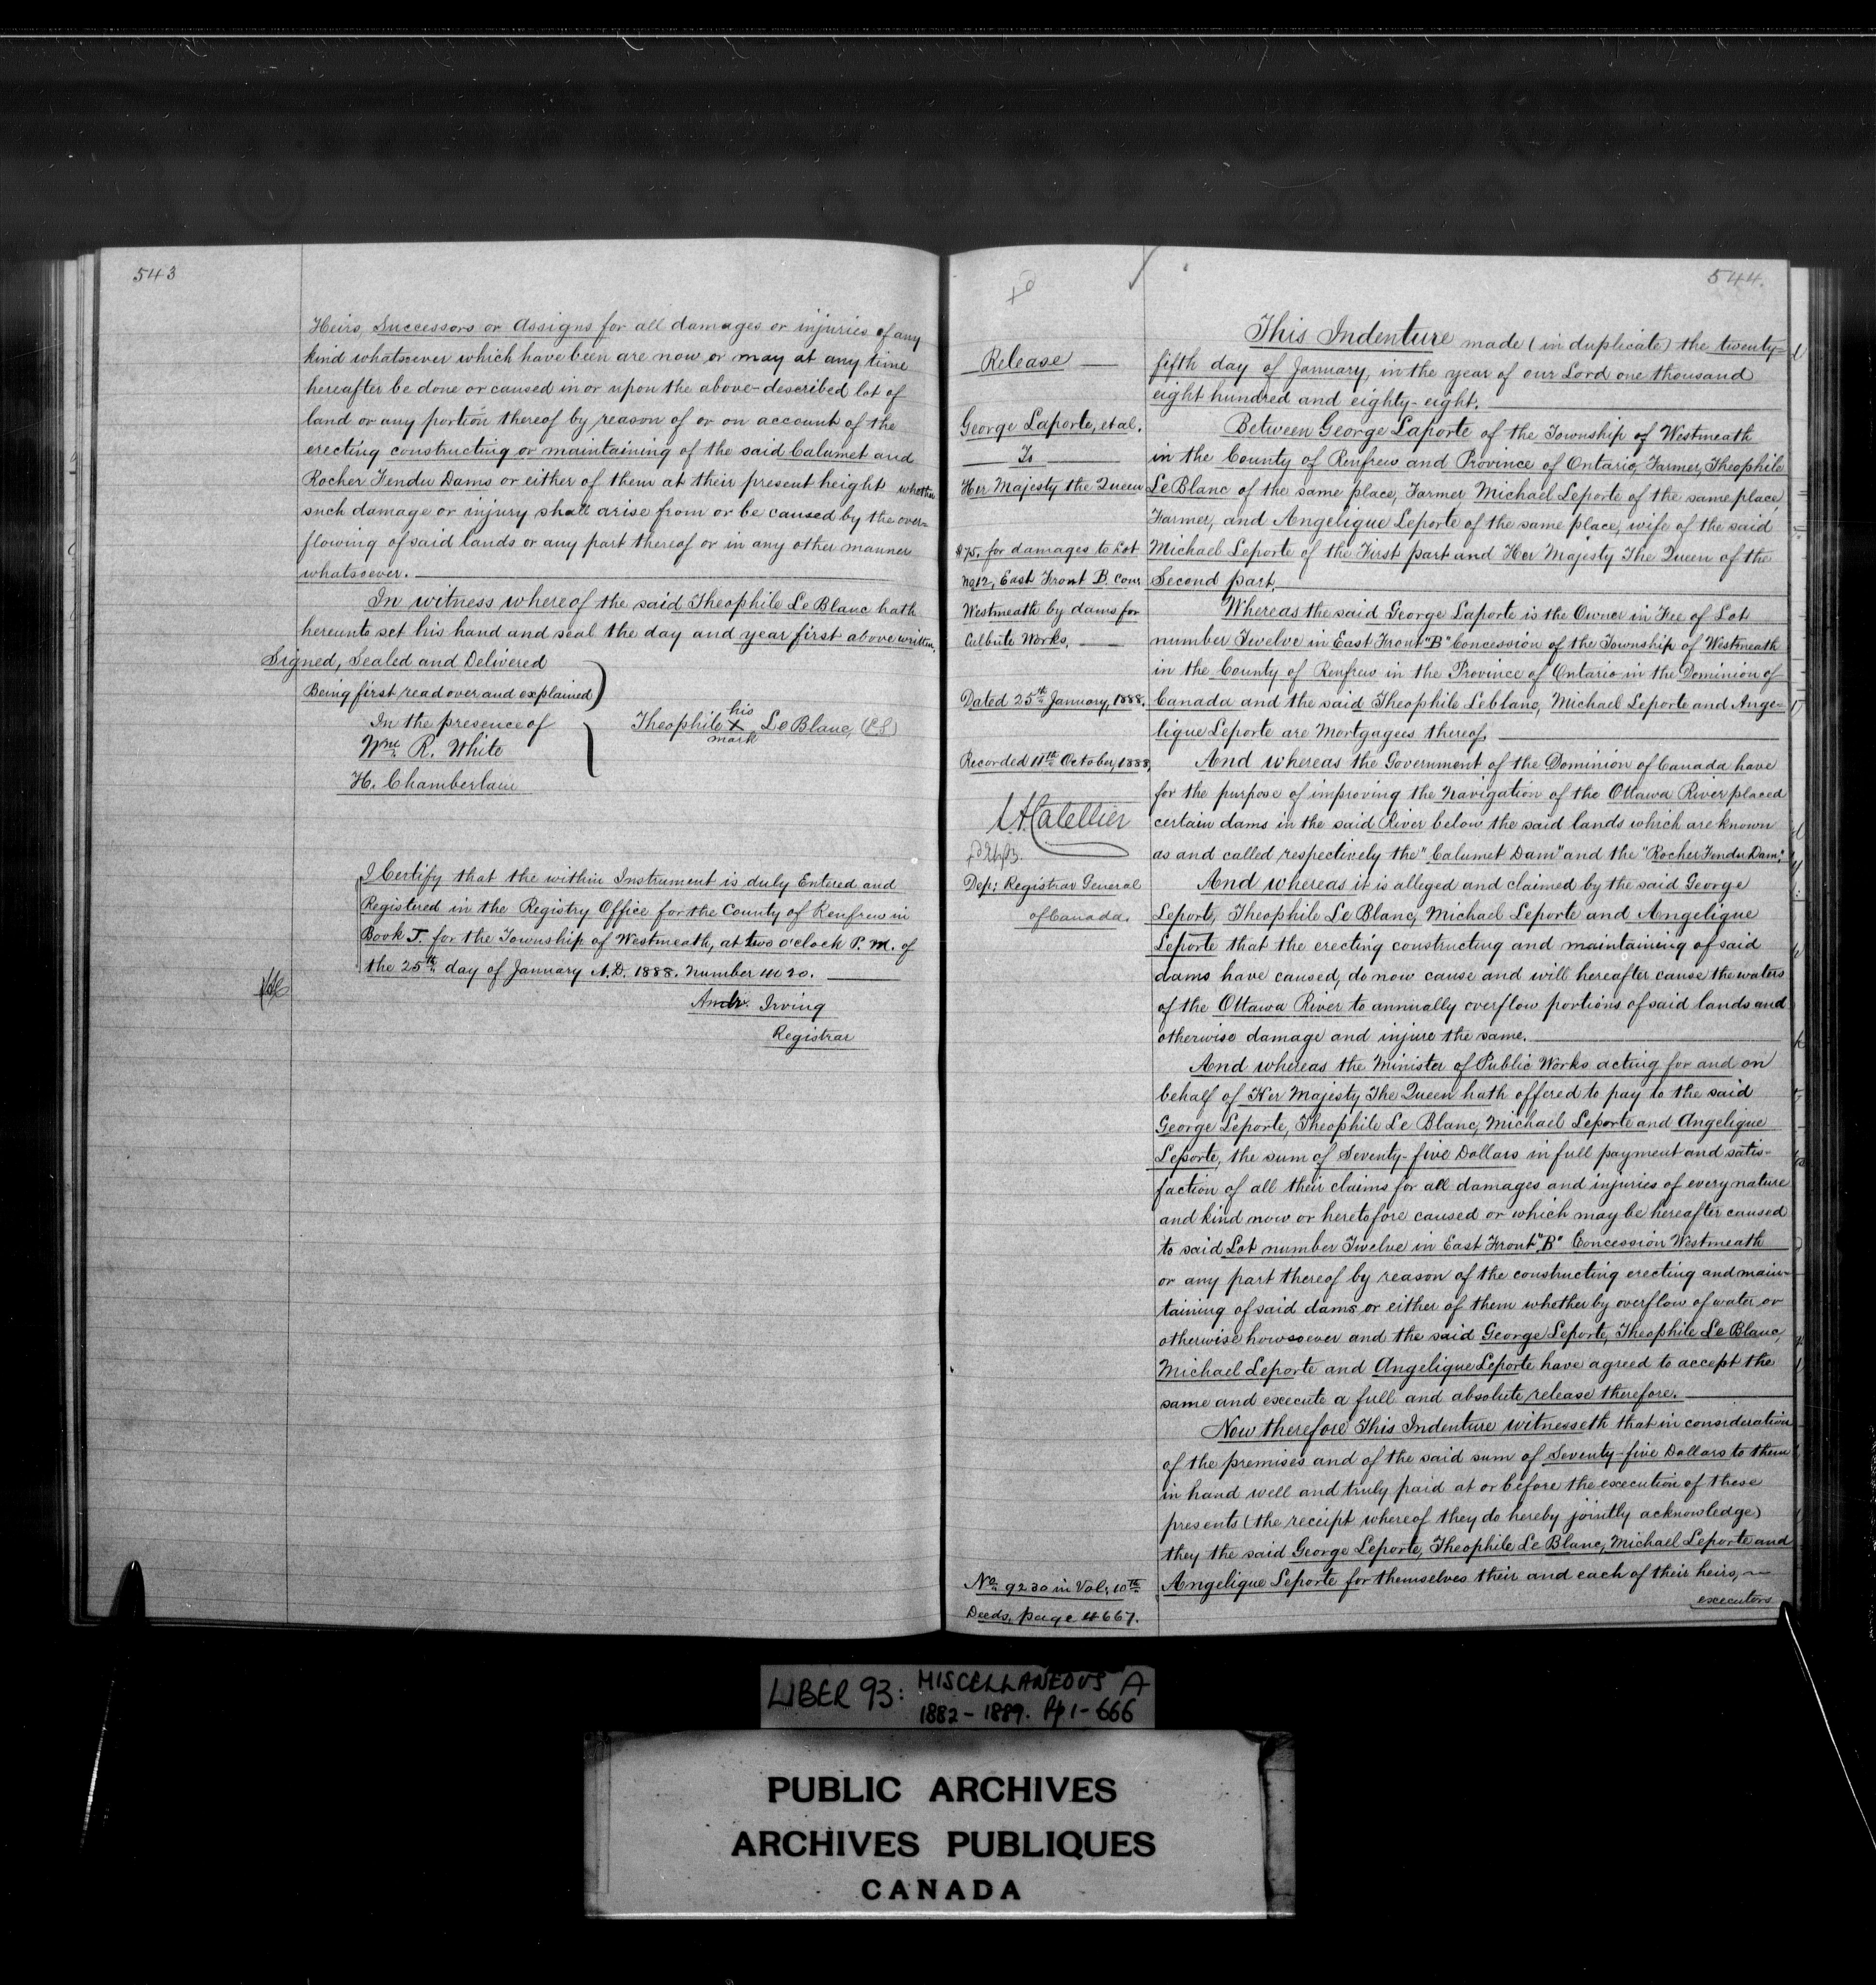 543
Heirs, Successors or Assigns for all damages or injuries of any
kind whatsoever which have been are now or may at any time
hereafter be done or caused in or upon the above-described lot of
land or any portion thereof by reason of or on account of the
erecting constructing or maintaining of the said Calumet and
Rocher Fendu Dams or either of them at their present height whether
such damage or injury shall arise from or be caused by the over=
flowing of said lands or any part thereof or in any other manner
whatsoever.
In witness whereof the said Theophile Le Blanc hath
hereunto set his hand and seal the day and year first above written.
Signed, Sealed and Delivered
Being first read over and explained
In the presence of
Wm. R. White
H. Chamberlain
his
Theophile X Le Blanc, (LS)
mark
I Certify that the within Instrument is duly Entered and
Registered in the Registry Office for the County of Renfrew in
Book J. for the Township of Westmeath, at two o'clock P.M. of
the 25th day of January A.D. 1888. Number
Andr Irving
Registrar
544.
Release
George Laporte, et al.
To
Her Majesty the Queen
$75. for damages to Lot
No 12, East Front B. Con
Westmeath by dams for
Culbute Works,
Dated 25th January, 1888.
Recorded 11th October, 1888,
Dep: Registrar General
of Canada.
No 9230 in Vol. 10th
Deeds, page 4667.
This Indenture made (in duplicate) the twenty-
fifth day of January, in the year of our Lord one thousand
eight hundred and eighty-eight.
Between George Laporte of the Township of Westmeath
in the County of Renfrew and Province of Ontario, Farmer, Theophile
Le Blanc of the same place, Farmer Michael Leporte of the same place,
Farmer, and Angelique Leporte of the same place, wife of the said
Michael Leporte of the First part and Her Majesty The Queen of the
Second part.
Whereas the said George Laporte is the Owner in Fee of Lot
number Twelve in East Front "B" Concession of the Township of Westmeath
in the County of Renfrew in the Province of Ontario in the Dominion of
Canada and the said Theophile Leblanc, Michael Leporte and Ange=
lique Leporte are Mortgagees thereof,
And whereas the Government of the Dominion of Canada have
for the purpose of improving the Navigation of the Ottawa River placed
certain dams in the said River below the said lands which are known
as and called respectively the "Calumet Dam" and the "Rocher Fendu Dam,"
And whereas it is alleged and claimed by the said George
Leporte, Theophile Le Blanc, Michael Leporte and Angelique
Leporte that the erecting constructing and maintaining of said
dams have caused, do now cause and will hereafter cause the waters
of the Ottawa River to annually overflow portions of said lands and
otherwise damage and injure the same.
And whereas the Minister of Public Works acting for and on
behalf of Her Majesty The Queen hath offered to pay to the said
George Leporte, Theophile Le Blanc, Michael Leporte and Angelique
Leporte, the sum of Seventy-five Dollars in full payment and satis-
faction of all their claims for all damages and injuries of every nature
and kind now or heretofore caused or which may be hereafter caused
to said Lot number Twelve in East Front "B" Concession Westmeath
or any part thereof by reason of the constructing erecting and main-
taining of said dams or either of them whether by overflow of water or
otherwise howsoever and the said George Leporte, Theophile Le Blanc,
Michael Leporte and Angelique Leporte have agreed to accept the
same and execute a full and absolute release therefore.
Now therefore This Indenture witnesseth that in consideration
of the premises and of the said sum of Seventy-five Dollars to them
in hand well and truly paid at or before the execution of these
presents (the receipt whereof they do hereby jointly acknowledge)
they the said George Leporte, Theophile Le Blanc, Michael Leporte and
Angelique Leporte for themselves their and each of their heirs,
executors
LIBER 93: MISCELLANEOUS A
1882-1889. Pp 1-666
PUBLIC ARCHIVES
ARCHIVES PUBLIQUES
CANADA